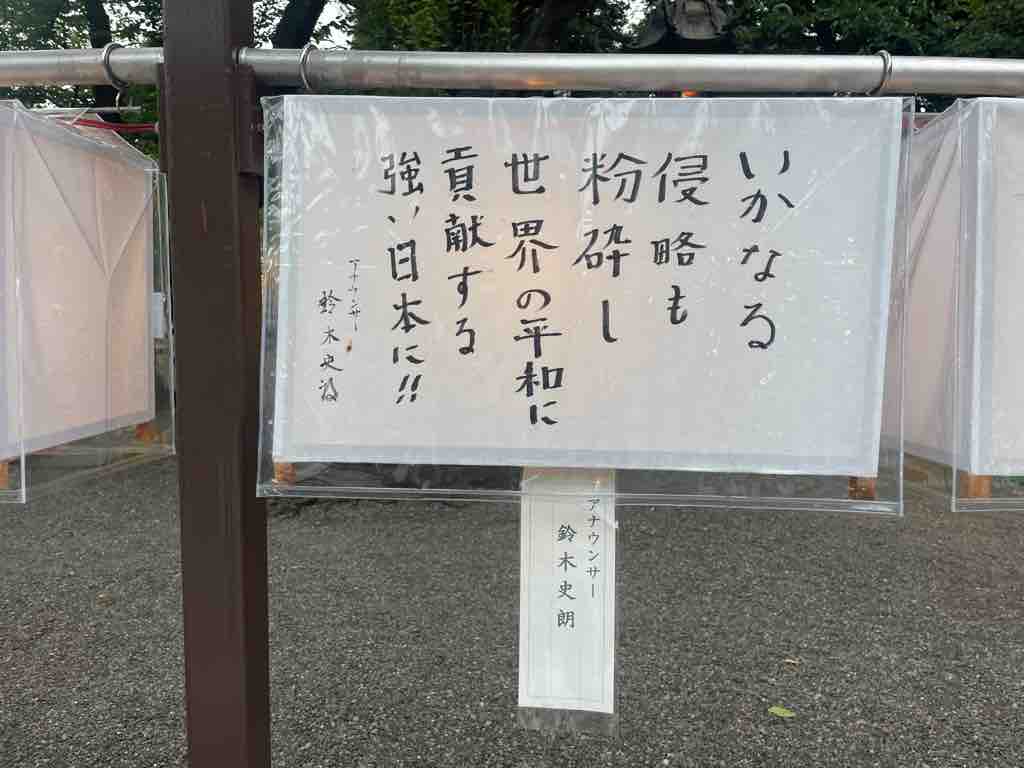 いかなる
侵略も
粉砕し
世界の平和に
貢献する
強い日本に!!
アナウンサー
鈴木史朗
アナウンサー
鈴木史朗